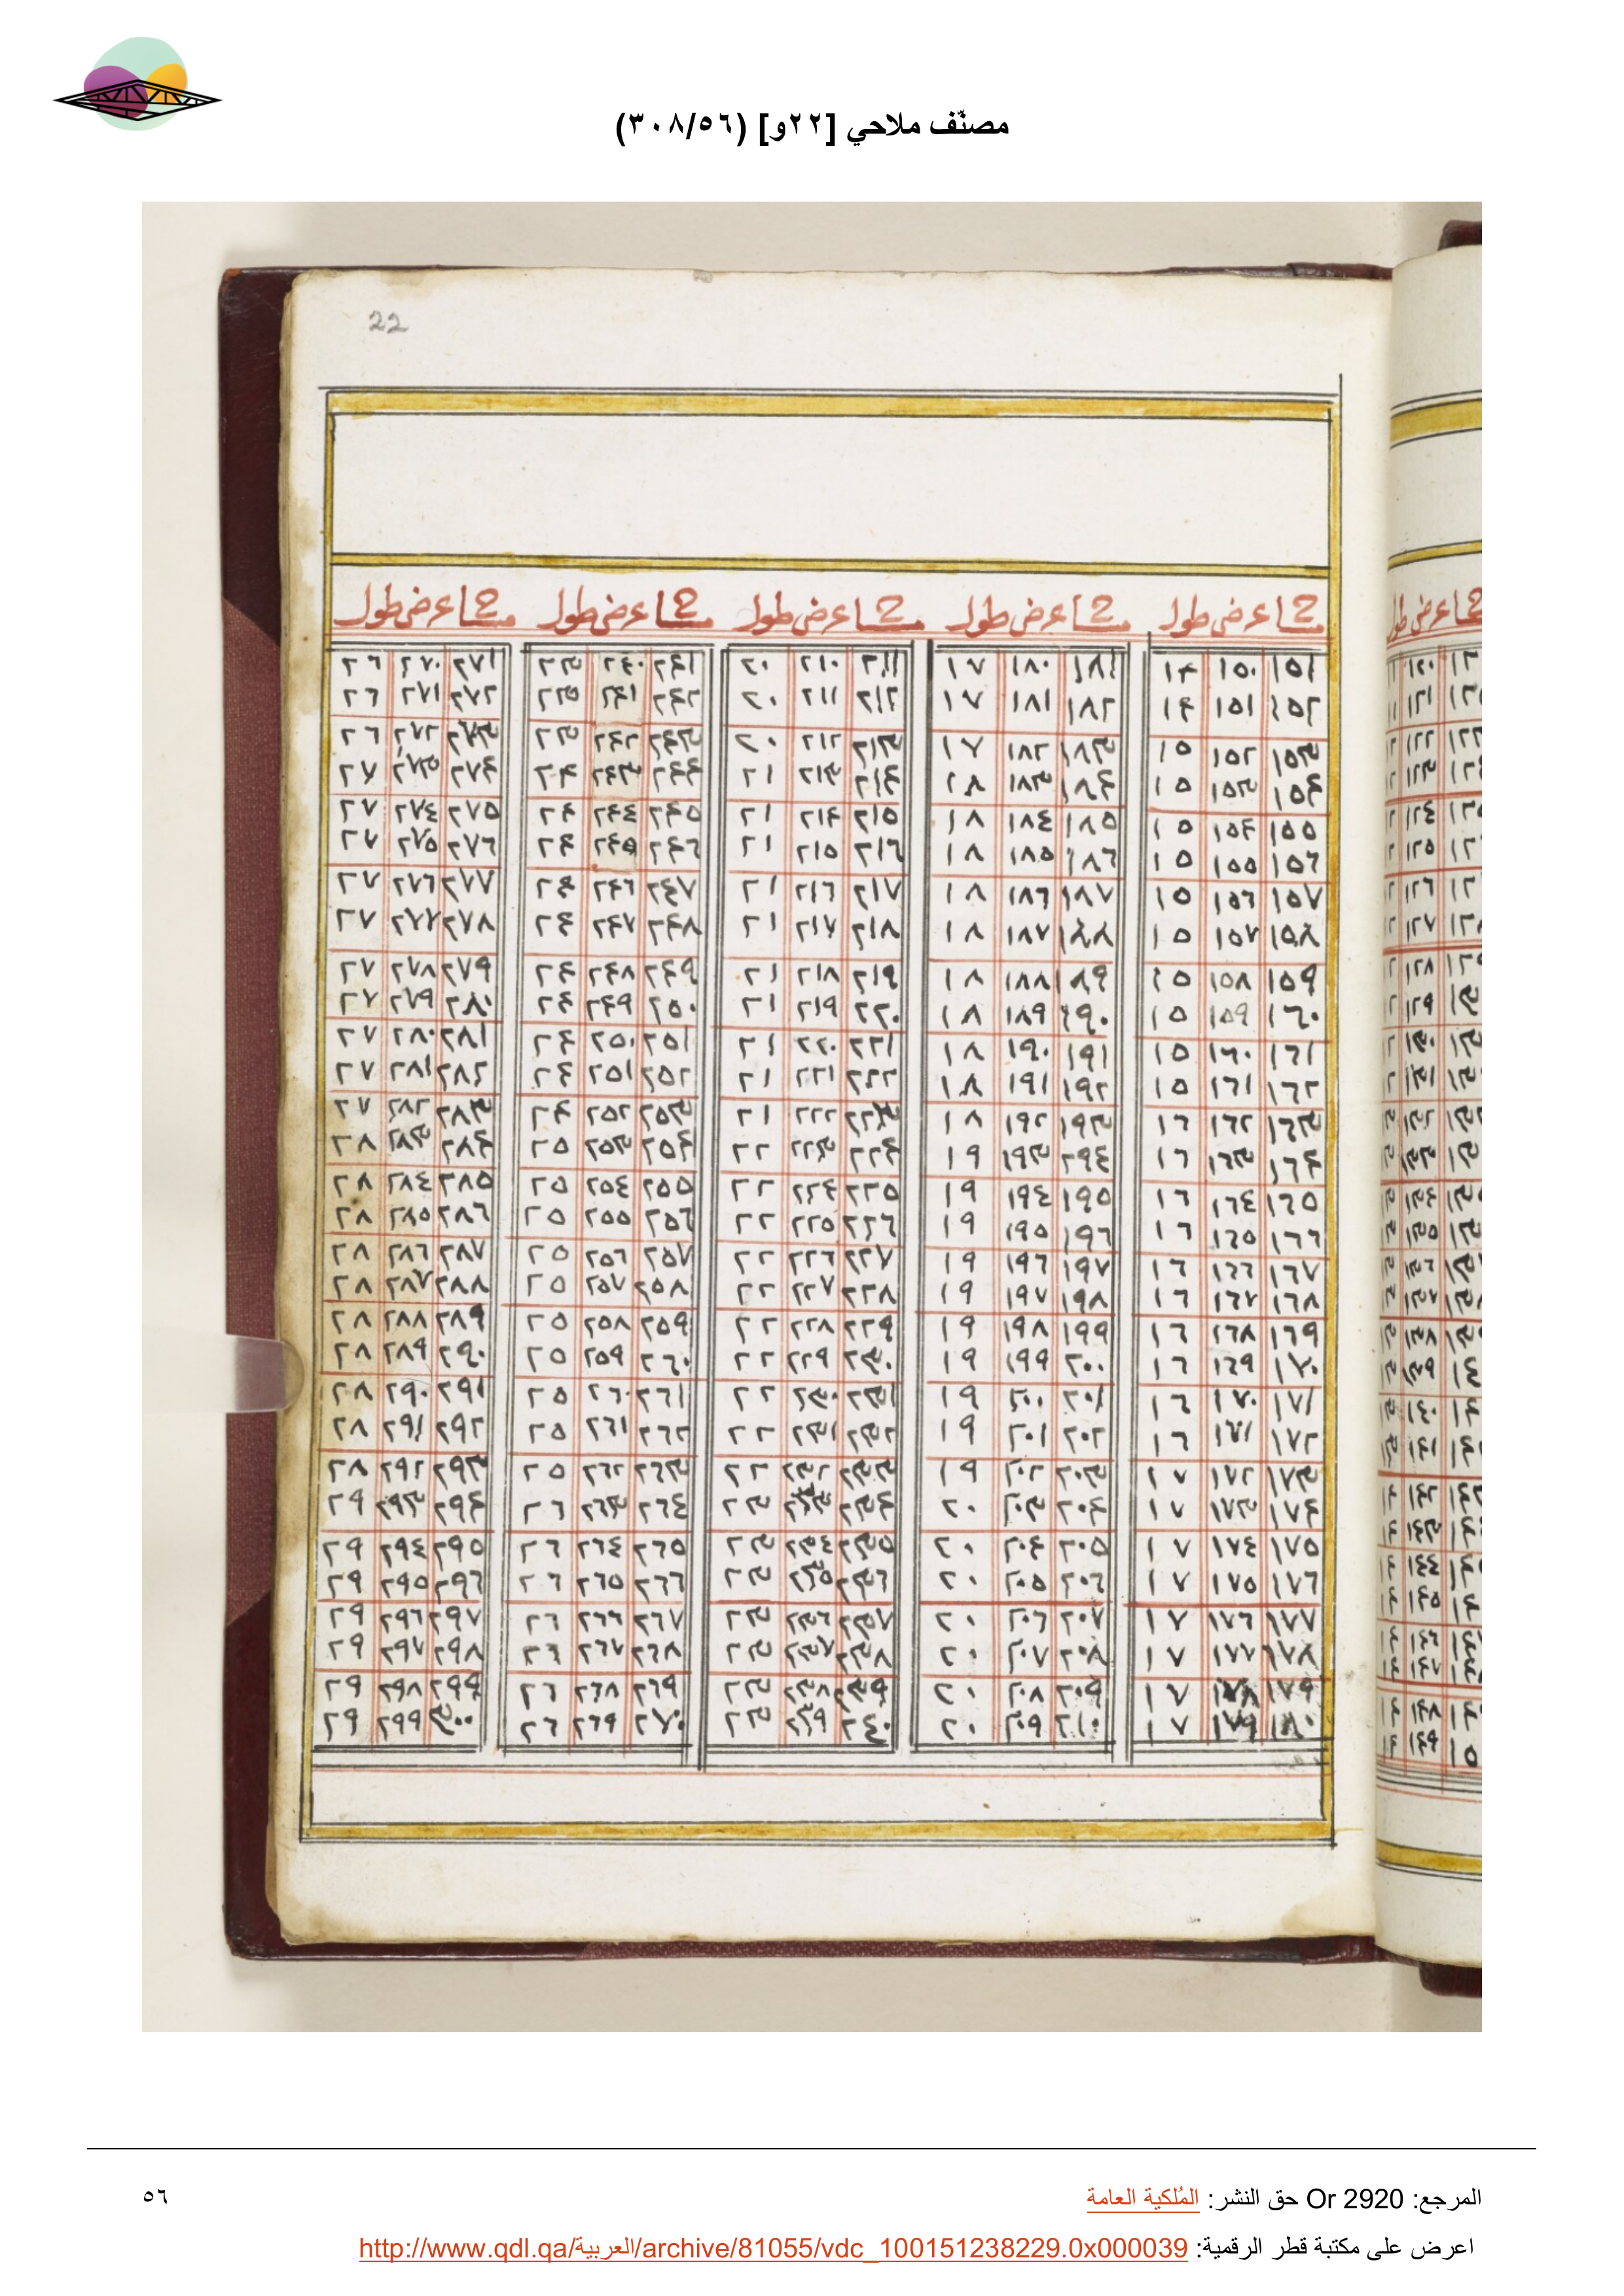 مصنّف ملاحي [٢٢و] (٣٠٨/٥٦)
22
مسا عرض طول مسا عرض طول مسا عرض طول مسا عرض طول مسا عرض طول
١٥١ ١٥٠ ١٤ ١٨١ ١٨٠ ١٧ ٢١١ ٢١٠ ٢٠ ٢٤١ ٢٤٠ ٢٣ ٢٧١ ٢٧٠ ٢٦
١٥٢ ١٥١ ١٤ ١٨٢ ١٨١ ١٧ ٢١٢ ٢١١ ٢٠ ٢٤٢ ٢٤١ ٢٣ ٢٧٢ ٢٧١ ٢٦
١٥٣ ١٥٢ ١٥ ١٨٣ ١٨٢ ١٧ ٢١٣ ٢١٢ ٢٠ ٢٤٣ ٢٤٢ ٢٣ ٢٧٣ ٢٧٢ ٢٦
١٥٤ ١٥٣ ١٥ ١٨٤ ١٨٣ ١٨ ٢١٤ ٢١٣ ٢١ ٢٤٤ ٢٤٣ ٢٤ ٢٧٤ ٢٧٣ ٢٧
١٥٥ ١٥٤ ١٥ ١٨٥ ١٨٤ ١٨ ٢١٥ ٢١٤ ٢١ ٢٤٥ ٢٤٤ ٢٤ ٢٧٥ ٢٧٤ ٢٧
١٥٦ ١٥٥ ١٥ ١٨٦ ١٨٥ ١٨ ٢١٦ ٢١٥ ٢١ ٢٤٦ ٢٤٥ ٢٤ ٢٧٦ ٢٧٥ ٢٧
١٥٧ ١٥٦ ١٥ ١٨٧ ١٨٦ ١٨ ٢١٧ ٢١٦ ٢١ ٢٤٧ ٢٤٦ ٢٤ ٢٧٧ ٢٧٦ ٢٧
١٥٨ ١٥٧ ١٥ ١٨٨ ١٨٧ ١٨ ٢١٨ ٢١٧ ٢١ ٢٤٨ ٢٤٧ ٢٤ ٢٧٨ ٢٧٧ ٢٧
١٥٩ ١٥٨ ١٥ ١٨٩ ١٨٨ ١٨ ٢١٩ ٢١٨ ٢١ ٢٤٩ ٢٤٨ ٢٤ ٢٧٩ ٢٧٨ ٢٧
١٦٠ ١٥٩ ١٥ ١٩٠ ١٨٩ ١٨ ٢٢٠ ٢١٩ ٢١ ٢٥٠ ٢٤٩ ٢٤ ٢٨٠ ٢٧٩ ٢٧
١٦١ ١٦٠ ١٥ ١٩١ ١٩٠ ١٨ ٢٢١ ٢٢٠ ٢١ ٢٥١ ٢٥٠ ٢٤ ٢٨١ ٢٨٠ ٢٧
١٦٢ ١٦١ ١٥ ١٩٢ ١٩١ ١٨ ٢٢٢ ٢٢١ ٢١ ٢٥٢ ٢٥١ ٢٤ ٢٨٢ ٢٨١ ٢٧
١٦٣ ١٦٢ ١٦ ١٩٣ ١٩٢ ١٨ ٢٢٣ ٢٢٢ ٢١ ٢٥٣ ٢٥٢ ٢٤ ٢٨٣ ٢٨٢ ٢٧
١٦٤ ١٦٣ ١٦ ٢٩٤ ١٩٣ ١٩ ٢٢٤ ٢٢٣ ٢٢ ٢٥٤ ٢٥٣ ٢٥ ٢٨٤ ٢٨٣ ٢٨
١٦٥ ١٦٤ ١٦ ١٩٥ ١٩٤ ١٩ ٢٢٥ ٢٢٤ ٢٢ ٢٥٥ ٢٥٤ ٢٥ ٢٨٥ ٢٨٤ ٢٨
١٦٦ ١٦٥ ١٦ ١٩٦ ١٩٥ ١٩ ٢٢٦ ٢٢٥ ٢٢ ٢٥٦ ٢٥٥ ٢٥ ٢٨٦ ٢٨٥ ٢٨
١٦٧ ١٦٦ ١٦ ١٩٧ ١٩٦ ١٩ ٢٢٧ ٢٢٦ ٢٢ ٢٥٧ ٢٥٦ ٢٥ ٢٨٧ ٢٨٦ ٢٨
١٦٨ ١٦٧ ١٦ ١٩٨ ١٩٧ ١٩ ٢٢٨ ٢٢٧ ٢٢ ٢٥٨ ٢٥٧ ٢٥ ٢٨٨ ٢٨٧ ٢٨
١٦٩ ١٦٨ ١٦ ١٩٩ ١٩٨ ١٩ ٢٢٩ ٢٢٨ ٢٢ ٢٥٩ ٢٥٨ ٢٥ ٢٨٩ ٢٨٨ ٢٨
١٧٠ ١٦٩ ١٦ ٢٠٠ ١٩٩ ١٩ ٢٣٠ ٢٢٩ ٢٢ ٢٦٠ ٢٥٩ ٢٥ ٢٩٠ ٢٨٩ ٢٨
١٧١ ١٧٠ ١٦ ٢٠١ ٢٠٠ ١٩ ٢٣١ ٢٣٠ ٢٢ ٢٦١ ٢٦٠ ٢٥ ٢٩١ ٢٩٠ ٢٨
١٧٢ ١٧١ ١٦ ٢٠٢ ٢٠١ ١٩ ٢٣٢ ٢٣١ ٢٢ ٢٦٢ ٢٦١ ٢٥ ٢٩٢ ٢٩١ ٢٨
١٧٣ ١٧٢ ١٧ ٢٠٣ ٢٠٢ ١٩ ٢٣٣ ٢٣٢ ٢٢ ٢٦٣ ٢٦٢ ٢٥ ٢٩٣ ٢٩٢ ٢٨
١٧٤ ١٧٣ ١٧ ٢٠٤ ٢٠٣ ٢٠ ٢٣٤ ٢٣٣ ٢٣ ٢٦٤ ٢٦٣ ٢٦ ٢٩٤ ٢٩٣ ٢٩
١٧٥ ١٧٤ ١٧ ٢٠٥ ٢٠٤ ٢٠ ٢٣٥ ٢٣٤ ٢٣ ٢٦٥ ٢٦٤ ٢٦ ٢٩٥ ٢٩٤ ٢٩
١٧٦ ١٧٥ ١٧ ٢٠٦ ٢٠٥ ٢٠ ٢٣٦ ٢٣٥ ٢٣ ٢٦٦ ٢٦٥ ٢٦ ٢٩٦ ٢٩٥ ٢٩
١٧٧ ١٧٦ ١٧ ٢٠٧ ٢٠٦ ٢٠ ٢٣٧ ٢٣٦ ٢٣ ٢٦٧ ٢٦٦ ٢٦ ٢٩٧ ٢٩٦ ٢٩
١٧٨ ١٧٧ ١٧ ٢٠٨ ٢٠٧ ٢٠ ٢٣٨ ٢٣٧ ٢٣ ٢٦٨ ٢٦٧ ٢٦ ٢٩٨ ٢٩٧ ٢٩
١٧٩ ١٧٨ ١٧ ٢٠٩ ٢٠٨ ٢٠ ٢٣٩ ٢٣٨ ٢٣ ٢٦٩ ٢٦٨ ٢٦ ٢٩٩ ٢٩٨ ٢٩
١٨٠ ١٧٩ ١٧ ٢١٠ ٢٠٩ ٢٠ ٢٤٠ ٢٣٩ ٢٣ ٢٧٠ ٢٦٩ ٢٦ ٣٠٠ ٢٩٩ ٢٩
المرجع: Or 2920 حق النشر: المُلكية العامة
٥٦
اعرض على مكتبة قطر الرقمية: http://www.qdl.qa/العربية/archive/81055/vdc_100151238229.0x000039